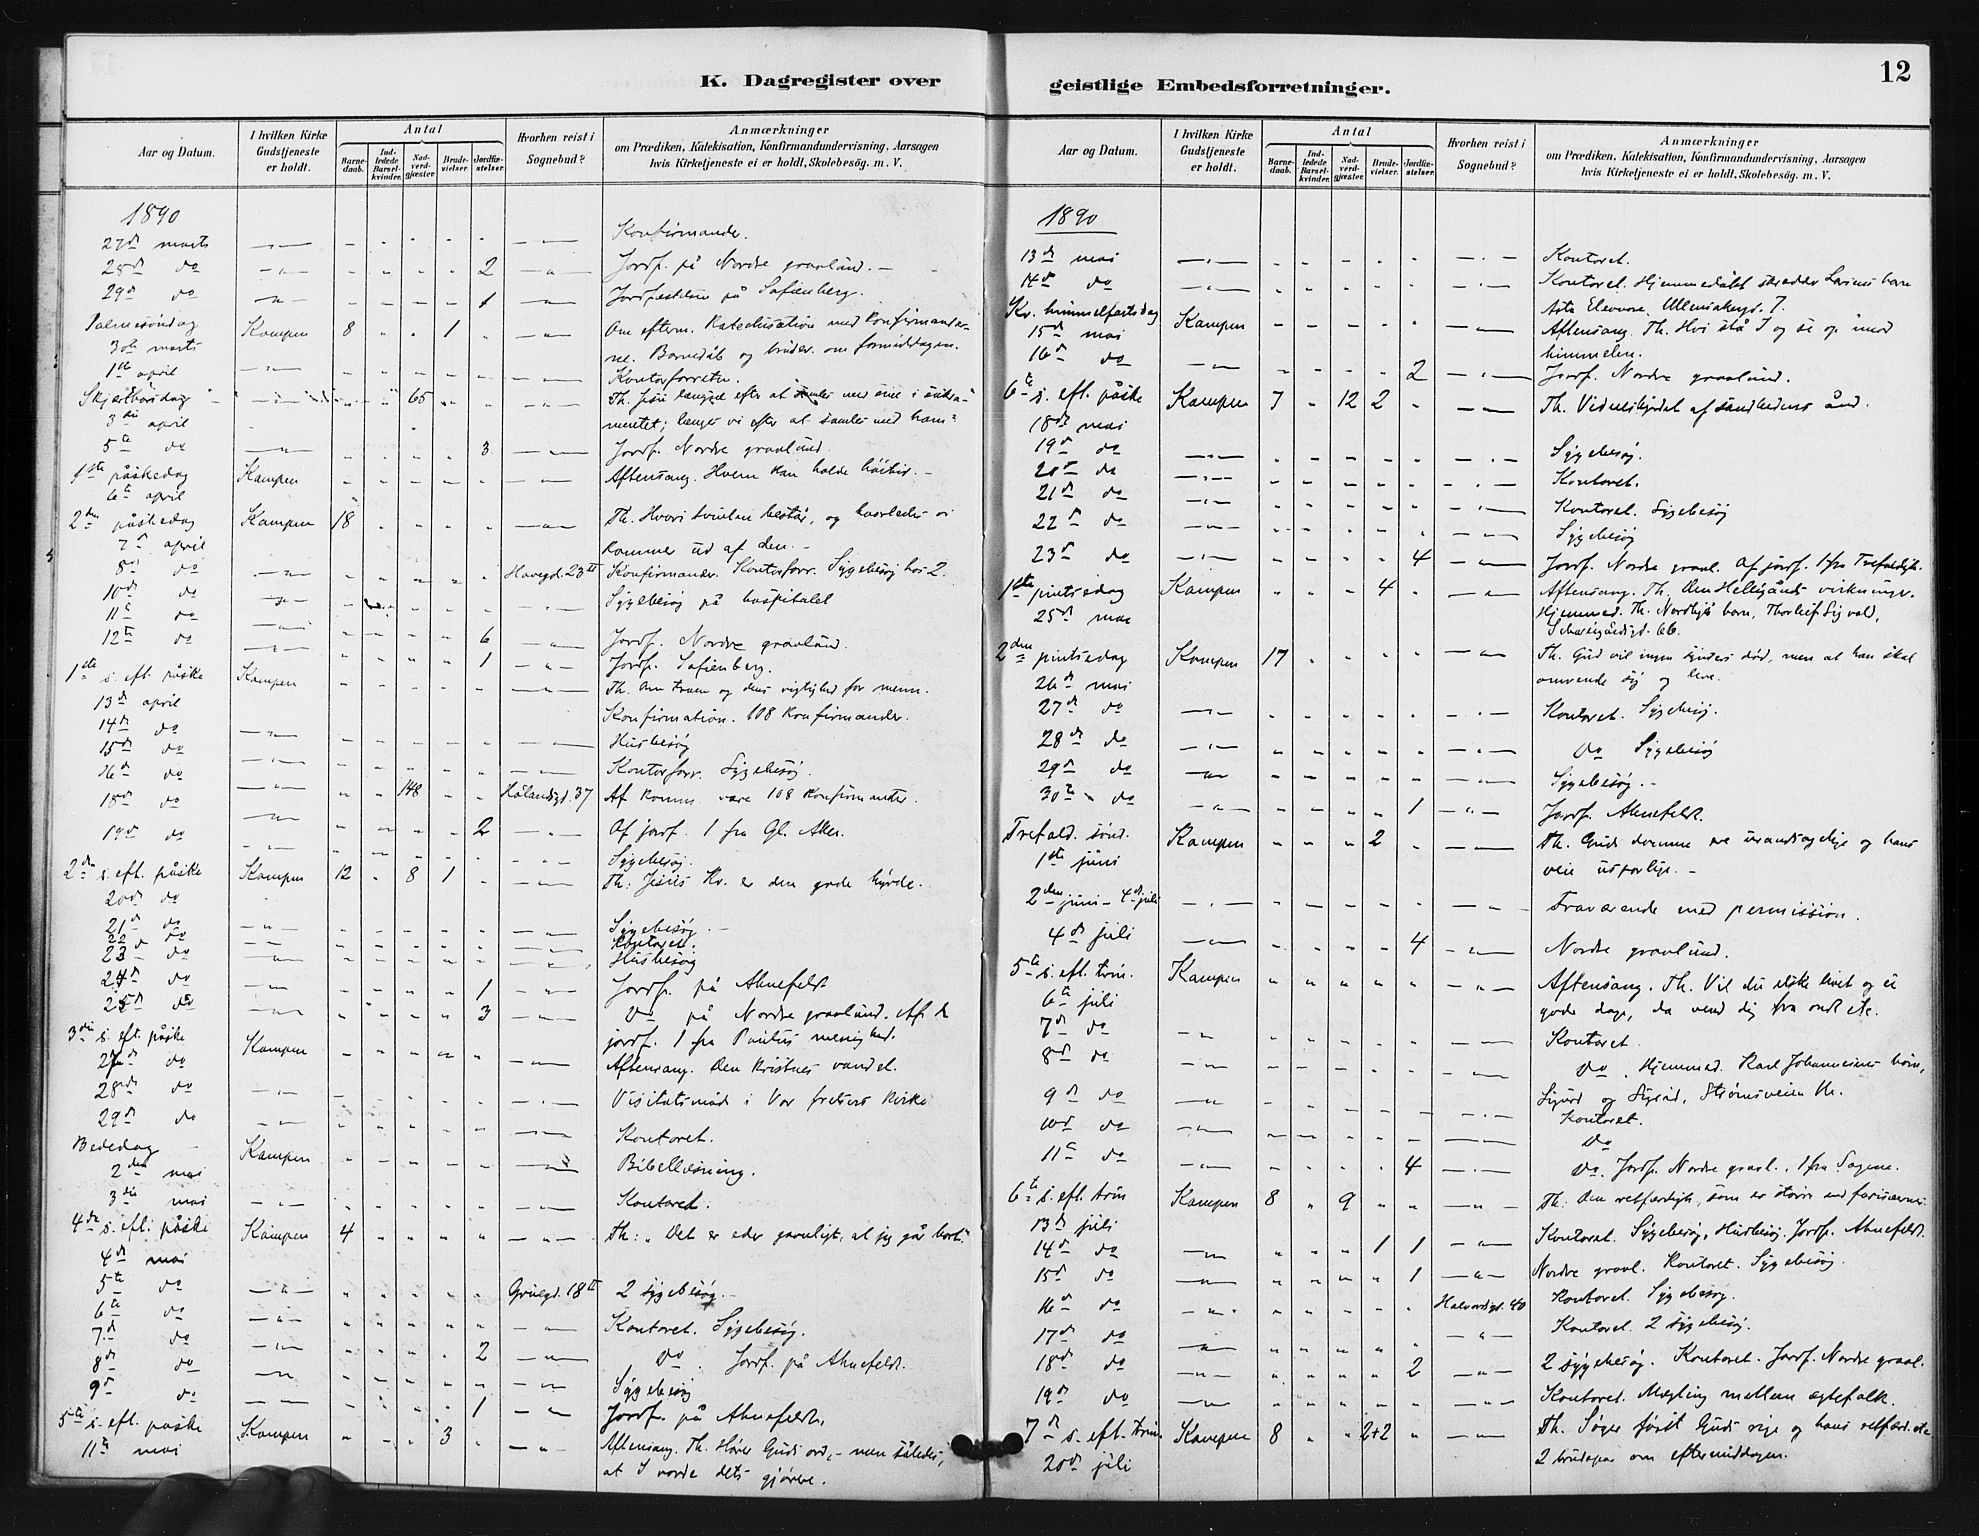 K. Dagregister over
Aar og Datum.
I hvilken Kirke Gudstjeneste er holdt.
Antal
Barne-daab.
Ind-ledede Barsel-kvinder.
Nad-verd-gjæster.
Brude-vielser.
Jordfæ-stelser.
Hvorhen reist i Sognebud?
Anmærkninger
om Prædiken, Katekisation, Konfirmandundervisning, Aarsagen
hvis Kirketjeneste ei er holdt, Skolebesög. m. V.
1890
27de marts Konfirmander.
28de do 2 Jordf. på Nordre gravlund.
29de do 1 Jordfæstelse på Sofienberg.
Palmesöndag Kampen 8 1 Om efterm. Katechisation med Konfirmander-
30te marts ne. Barnedåb og brudev. om formiddagen.
1ste april Kontorforretn.
Skjærthorsdag 65 Th. Jesu længsel efter at samles med sine i sakra-
3die april mentet; længes vi efter at samles med ham?
5te do 3 Jordf. Nordre gravlund.
1ste påskedag Kampen Aftensang. Hvem kan holde höitid.
6te april
2den påskedag Kampen 18 Th. Hvori tvivlen består, og hvorledes vi
7de april kommer ud af den.
8de do Havegd. 23 II Konfirmander. Kontorforr. Sygebesög hos 2.
10de do Sygebesög på hospitalet
11te do 6 Jordf. Nordre gravlund.
12te do 1 Jordf. Sofienberg.
1ste s. eft. påske Kampen Th. Om troen og dens vigtighed for menn.
13de april Konfirmation. 108 Konfirmander.
14de do Husbesög
15de do Kontorforr. Sygebesög.
16de do 148 Hölandsgd. 37 Af komm. vare 108 Konfirmander.
18de do 2 Af jordf. 1 fra Gl. Aker.
19de do Sygebesög.
2den s. eft. påske Kampen 12 8 1 Th: Jesus Kr. er den gode hyrde.
20de do
21de do Sygebesög
22 do Kontoret.
23de do Husbesög
24de do 1 Jordf. på Ahnefeldt
25de do 3 Do på Nordre gravlund. Af de
3die s. eft. påske Kampen jordf. 1 fra Paulus menighed.
27de do Aftensang. Den kristnes vandel.
28de do Visitatsmöde i Vor frelsers kirke
29de do Kontoret.
Bededag Kampen Bibellæsning.
2den mai
3die mai Kontoret.
4de s. eft. påske Kampen 4 Th: "Det er eder gavnligt, at jeg går bort".
4de mai
5te do Grüegd. 18 II 2 sygebesög.
6te do Kontoret. Sygebesög.
7de do 2 Do. Jordf. på Ahnefeldt.
8de do Sygebesög
9de do 1 Jordf. på Ahnefeldt.
5te s. eft. påske Kampen 3 Aftensang. Th. Hører Guds ord, - men således,
11te mai at I vorde dets gjørere.
geistlige Embedsforretninger.
12
Aar og Datum.
I hvilken Kirke Gudstjeneste er holdt.
Antal
Barne-daab.
Ind-ledede Barsel-kvinder.
Nad-verd-gjæster.
Brude-vielser.
Jordfæ-stelser.
Hvorhen reist i Sognebud?
Anmærkninger
om Prædiken, Katekisation, Konfirmandundervisning, Aarsagen
hvis Kirketjeneste ei er holdt, Skolebesög. m. V.
1890
13de mai Kontoret.
14de do Kontoret. Hjemmedöbt skrædder Larsens barn
Kr. himmelfartsdag Kampen Asta Eleonore, Ullensakergd. 7.
15de mai Aftensang. Th. Hvi stå I og se op imod
himmelen.
16de do 2 Jordf. Nordre gravlund.
6te s. eft. påske Kampen 7 12 2 Th. Vidnesbyrdet af sandhedens ånd.
18de mai
19de do Sygebesög.
20de do Kontoret.
21de do Kontoret. Sygebesög
22de do Sygebesög
23de do 4 Jordf. Nordre gravl. Af jordf. 1 fra Trefoldigh.
1ste pintsedag Kampen 4 Aftensang. Th. Den Helligånds virkninger.
25de mai Hjemmed. Th. Nordbys barn, Thorleif Sigvald,
Schweigårdsgd. 66.
2den pintsedag Kampen 17 Th. Gud vil ingen synders död, men at han skal
26de mai omvende sig og leve.
27de do Kontoret. Sygebesög.
28de do Do Sygebesög
29de do Sygebesög.
30te do 1 Jordf. Ahnefeldt.
Trefold. sönd. Kampen 2 Th. Guds domme ere uransagelige og hans
1ste juni veie usporlige.
2den juni - 4de juli Fraværende med permission.
4de juli 4 Nordre gravlund.
5te s. eft. trin. Kampen Aftensang. Th. Vil du elske livet og se
6te juli gode dage, da vend dig fra ondt etc.
7de do Kontoret
8de do Do. Hjemmed. Karl Johannesens börn,
Sigurd og Sigrid, Strömsveien
9de do Kontoret.
10de do Do
11te do 4 Do. Jordf. Nordre gravl., 1 fra Sagene.
6te s. eft. trin Kampen 8 9 Th: Den retfærdigh. som er större end farisæernes
13de juli
14de do 1 1 Kontoret. Sygebesög, Husbesög. Jordf. Ahnefeldt.
15de do 1 Nordre gravl. Kontoret. Sygebesög.
16de do Halvordsgd. 40 Kontoret. Sygebesög.
17de do Kontoret. 2 sygebesög.
18de do 2 2 sygebesög. Kontoret. Jordf. Nordre gravl.
19de do Kontoret. Mægling mellem ægtefolk.
7de s. eft. trin. Kampen 8 2+2 Th. Söger först Guds rige og hans retfærd. etc
20de juli 2 brudepar om eftermiddagen.